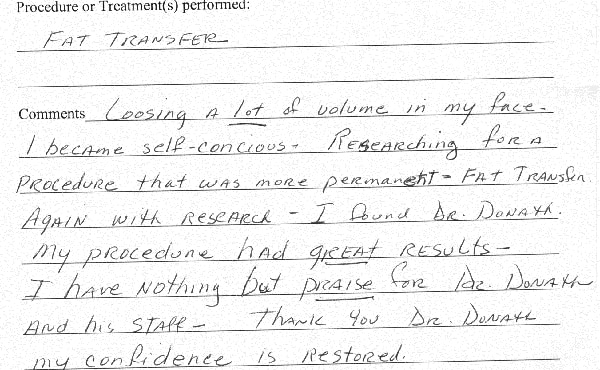 Procedure or Treatment(s) performed:
FAT TRANSFER
Comments Loosing A lot of volume in my face-
I became self-concious- Researching for A
Procedure that was more permanent- FAT Transfer.
Again with research - I found Dr. Donath.
My procedure had great results-
I have nothing but praise for Dr. Donath
And his staff- Thank you Dr. Donath
my confidence is restored.